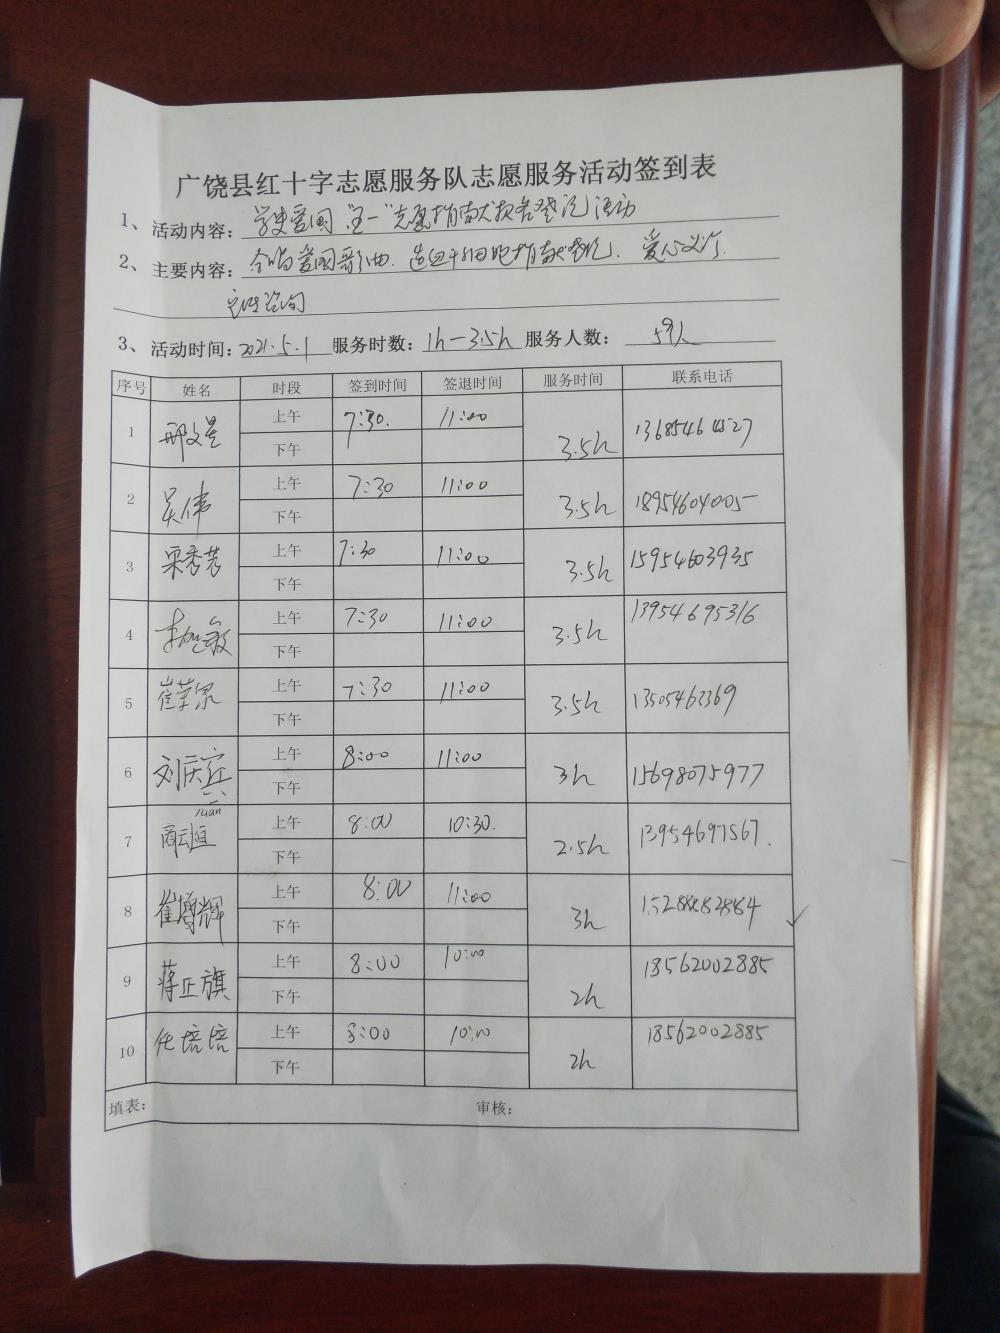 广饶县红十字志愿服务队志愿服务活动签到表
1、活动内容：学史爱国“五一”志愿捐献报名登记活动
2、主要内容：合唱爱国歌曲．造血干细胞捐献登记．爱心义诊．
咨询
3、活动时间：2021.5.1 服务时数：1h—3.5h 服务人数：59人
序号 姓名 时段 签到时间 签退时间 服务时间 联系电话
1 邢文星 上午 7:30. 11:00 3.5h
下午
2 吴伟 上午 7:30 11:00 3.5h 18954604005
下午
3 栗秀芸 上午 7:30 11:00 3.5h 15954603935
下午
4 李 敏 上午 7:30 11:00 3.5h 13954695316
下午
5 崔 上午 7:30 11:00 3.5h 13505462369
下午
6 刘庆宾 上午 8:00 11:00 3h 15698075977
下午
xuan
7 商 上午 8:00 10:30. 2.5h 13954697567.
下午
8 崔博辉 上午 8:00 11:00 3h
下午
9 蒋正旗 上午 8:00 10:00 2h 18562002885
下午
10 任培培 上午 8:00 10:00 2h 18562002885
下午
填表： 审核：